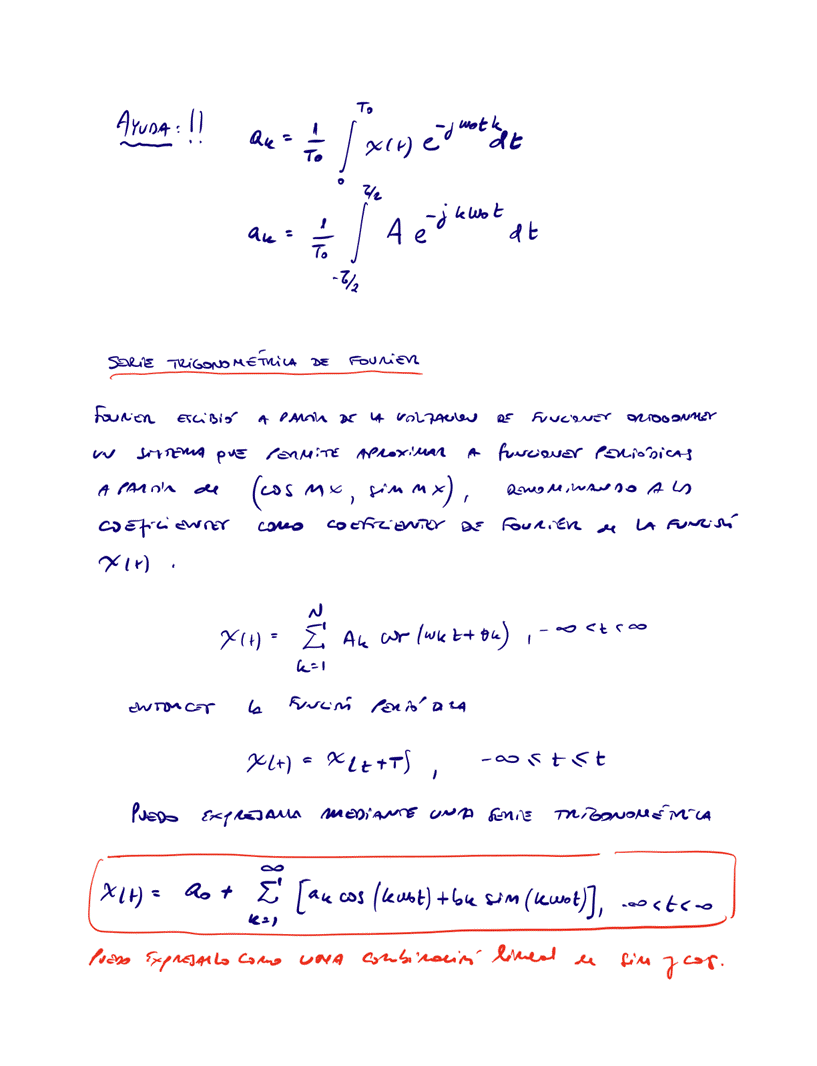 AYUDA: !! ak = 1/T0 ∫_0^T0 x(t) e^{-jω0tk} dt
ak = 1/T0 ∫_{-τ/2}^{τ/2} A e^{-jkω0t} dt
SERIE TRIGONOMÉTRICA DE FOURIER
FOURIER A PARTIR DE LA DE FUNCIONES
UN SISTEMA QUE PERMITE APROXIMAR A FUNCIONES PERIÓDICAS
A PARTIR de (COS MX, sin MX), A LOS
COEFICIENTES COMO COEFICIENTES DE FOURIER de LA FUNCIÓN
X(t).
X(t) = Σ_{k=1}^{N} Ak cos(ωk t + θk), -∞ < t < ∞
ENTONCES la FUNCIÓN PERIÓDICA
X(t) = X(t+T), -∞ ≤ t ≤ t
PUEDO EXPRESARLA MEDIANTE UNA SERIE TRIGONOMÉTRICA
X(t) = a0 + Σ_{k=1}^{∞} [ak cos(kω0t) + bk sin(kω0t)], -∞ < t < ∞
PUEDO EXPRESARLO COMO UNA COMBINACIÓN lineal de sin y cos.